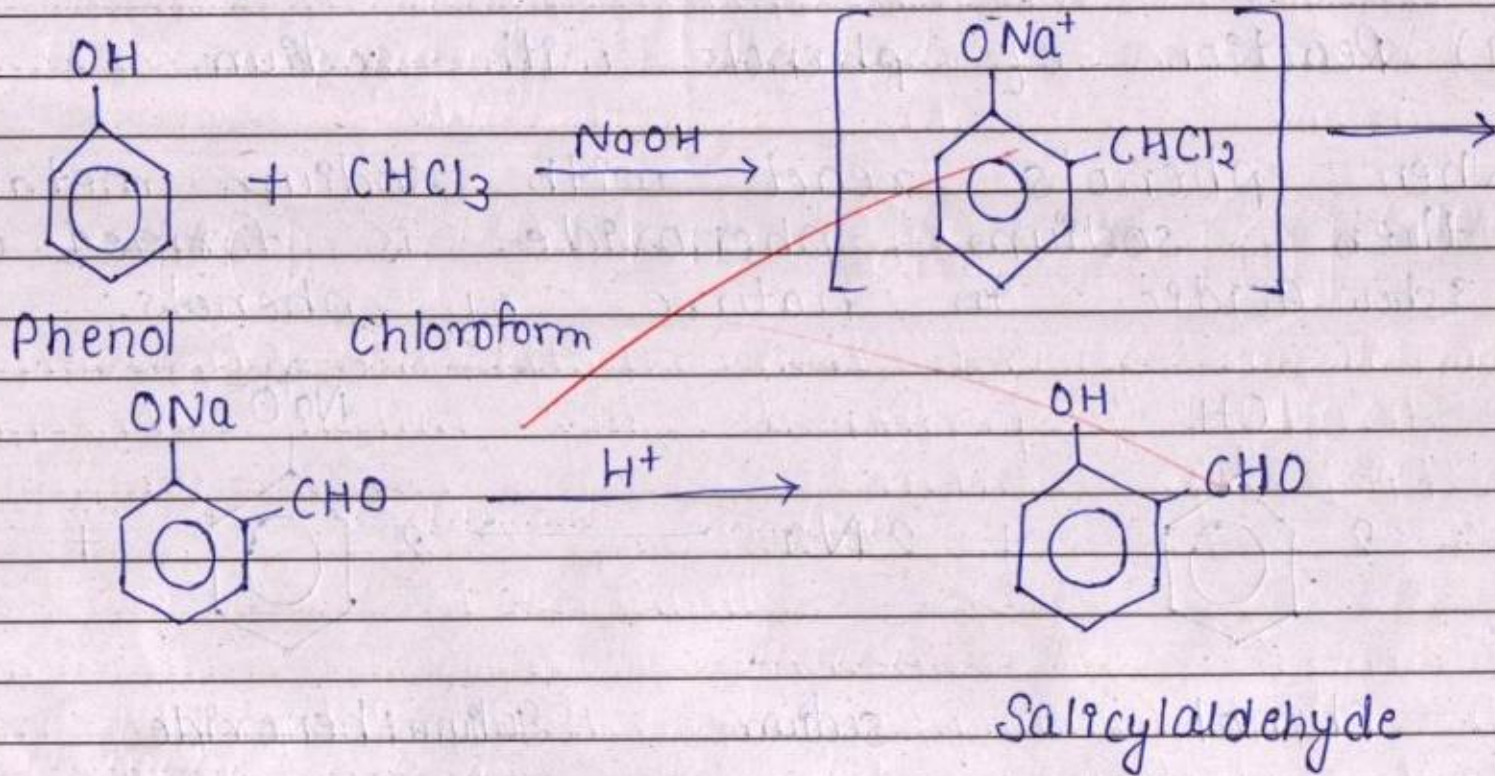 OH
+ CHCl₃ NaOH → [ O⁻Na⁺ CHCl₂ ] →
Phenol Chloroform
ONa CHO H⁺ → OH CHO
Salicylaldehyde